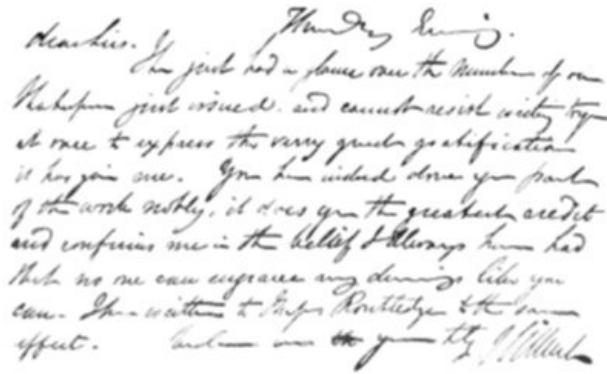 Thursday Evening.
dear Sirs.
I have just had a glance over the number of our
Shakspere just issued. and cannot resist writing to you
at once to express the verry great gratification
it has given me. You have indeed done your part
of the work nobly, it does you the greatest credit
and confirms me in the belief I allways have had
that no one can engrave my drawings like you
can. I have written to Messrs Routledge to the same
effect. believe me yours truly J Gilbert